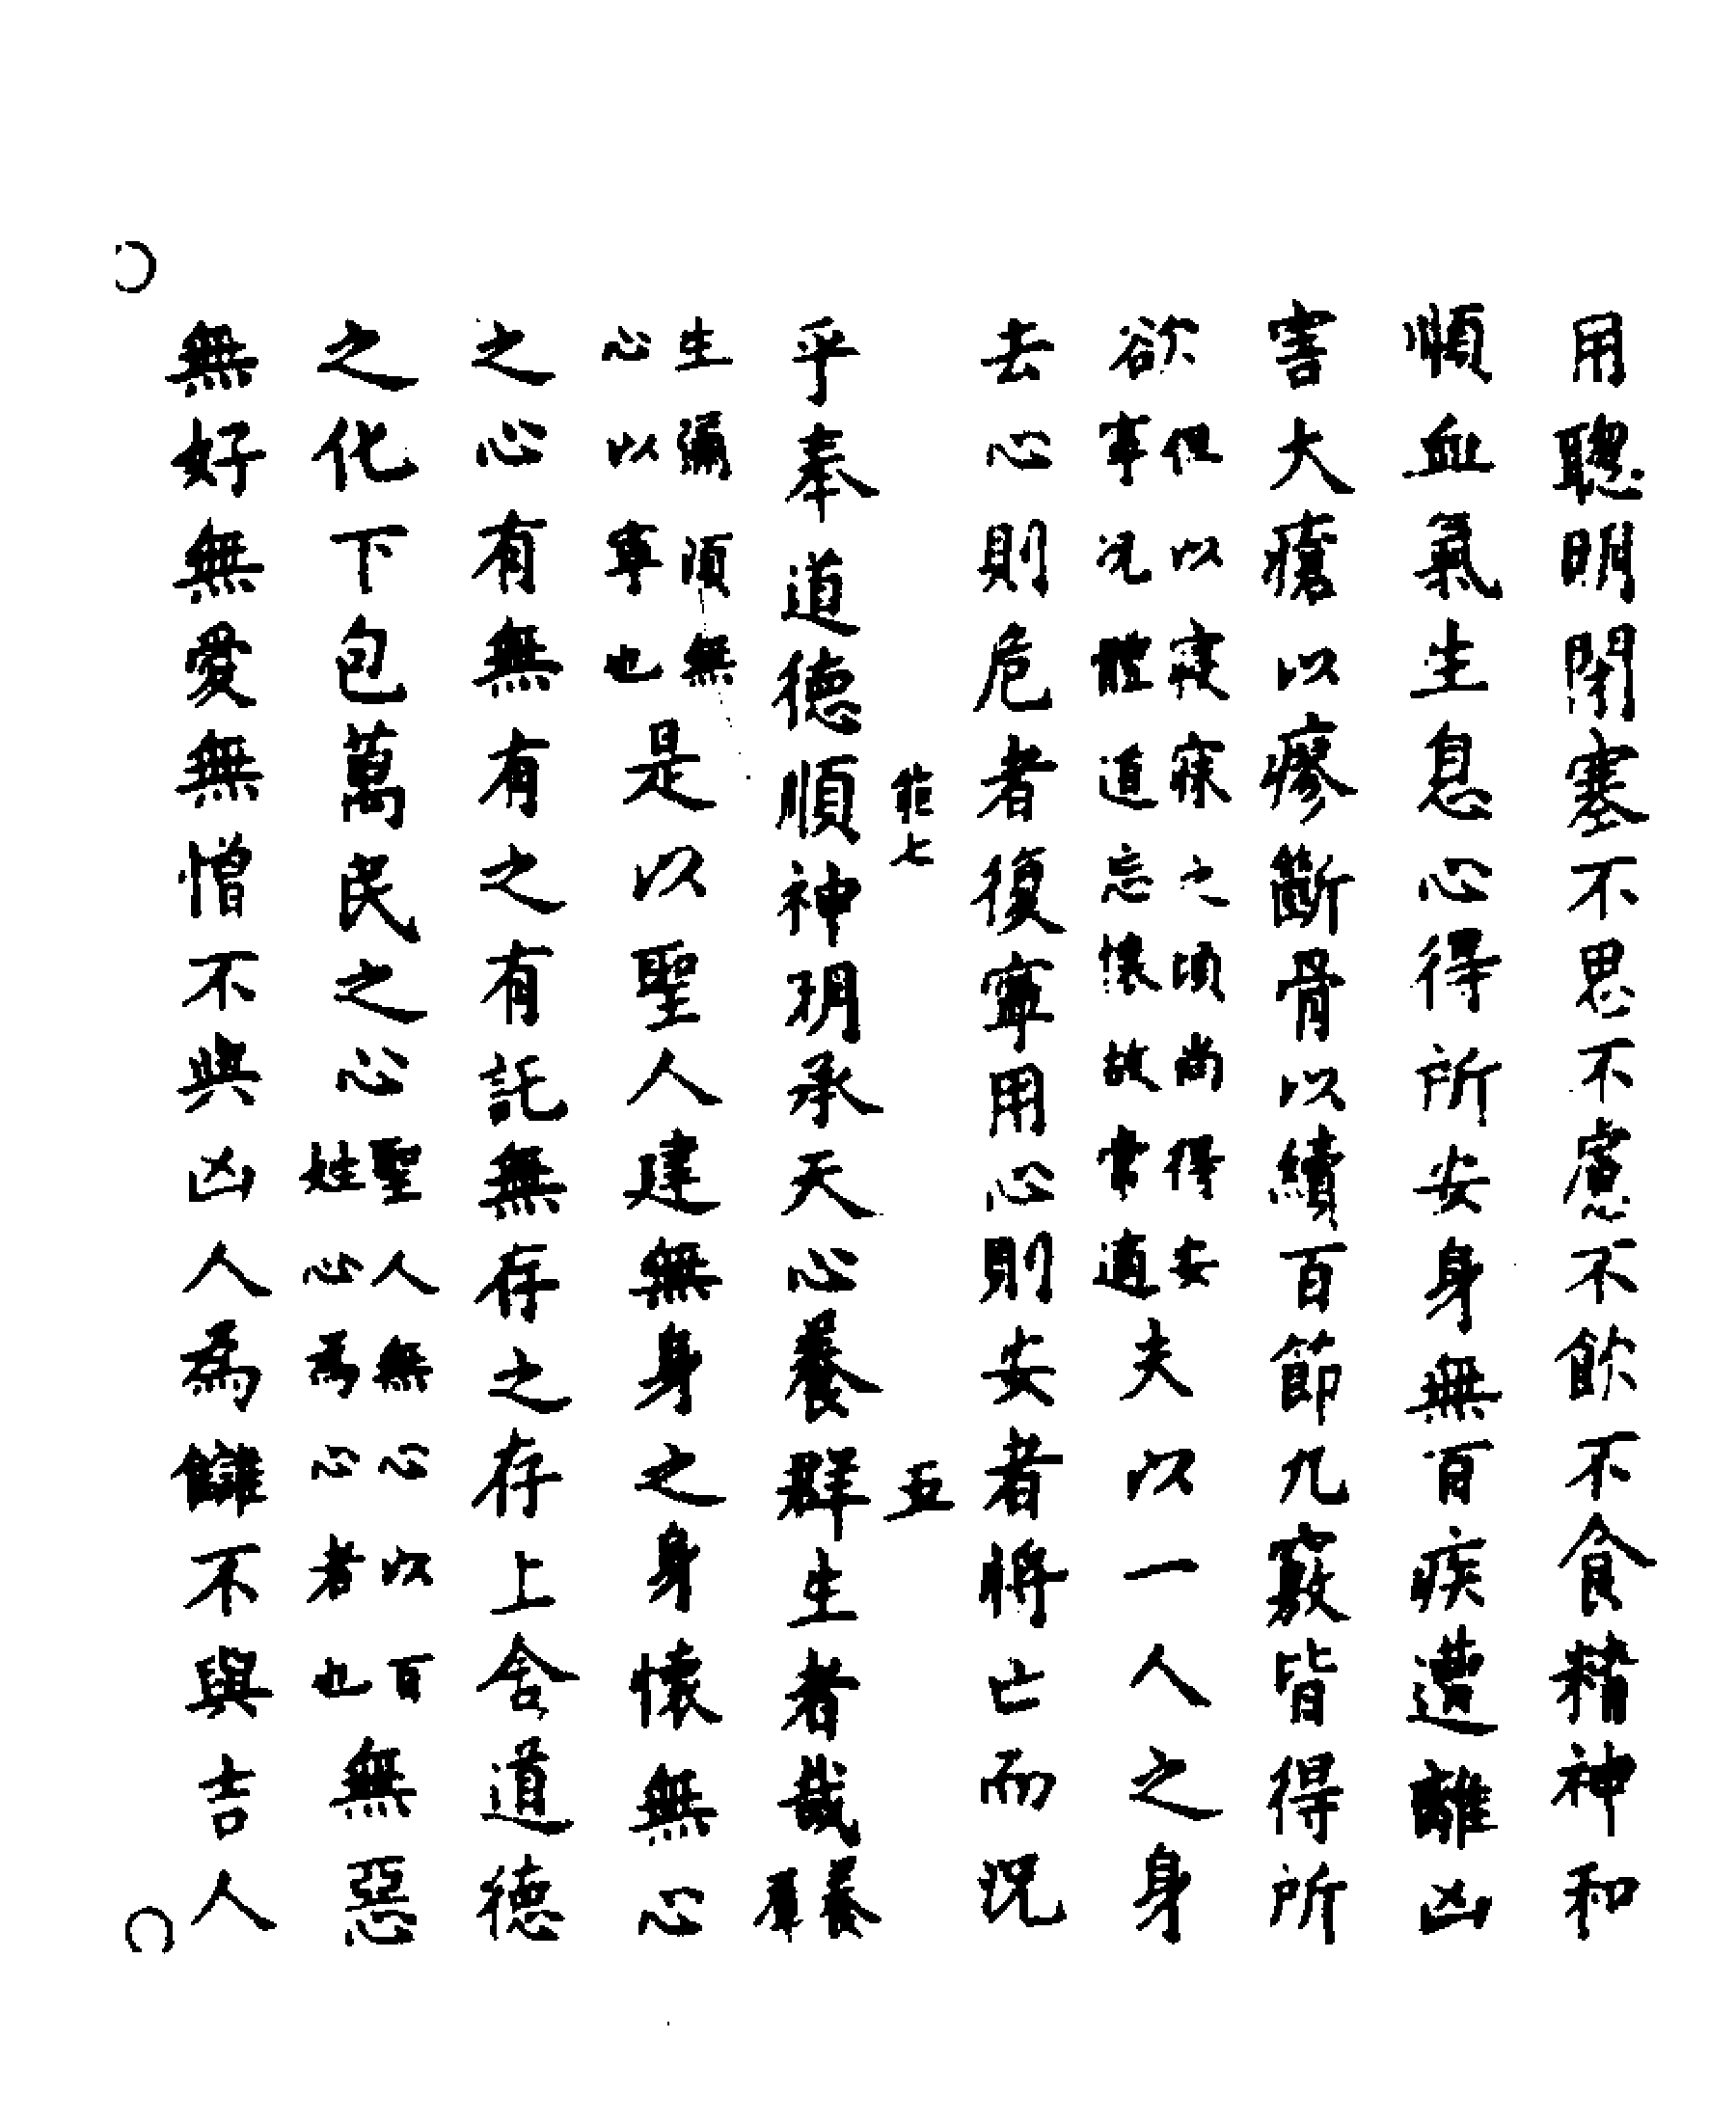 用聰明閉塞不思不慮不飲不食精神和
順血氣生息心得所安身無百疾遭離凶
害大瘡以瘳斷骨以續百節九竅皆得所
欲但以寑寐之頃尚得安寧况體道忘懷故常適夫以一人之身
去心則危者復寧用心則安者將亡而況
能七 五
乎奉道德順神明承天心養群生者哉養羣
生彌須無心以寧也是以聖人建無身之身懷無心
之心有無有之有託無存之存上含道德
之化下包萬民之心聖人無心以百姓心為心者也無惡
無好無愛無憎不與凶人為讎不與吉人